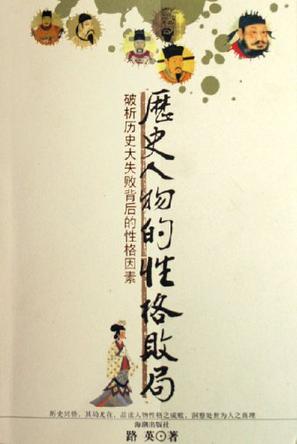 歷史人物的性格敗局
破析历史大失败背后的性格因素
历史兴替，其局尤在，品读人物性格之成败，洞察处世为人之真理
海潮出版社
路英⊙著